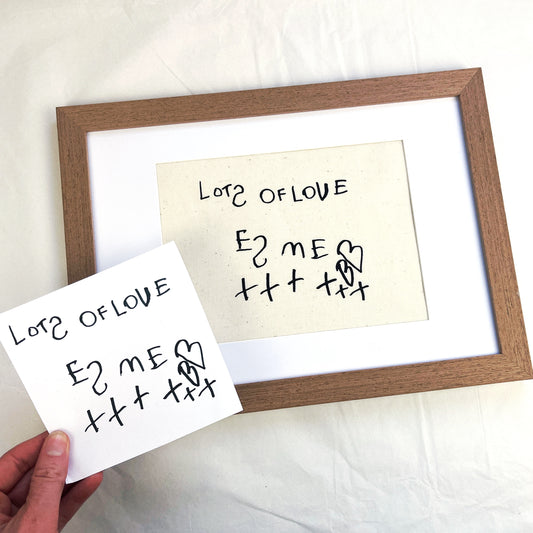 LOTS OF LOVE
ES ME
+++ +++
LOTS OF LOVE
ES ME
+++ +++